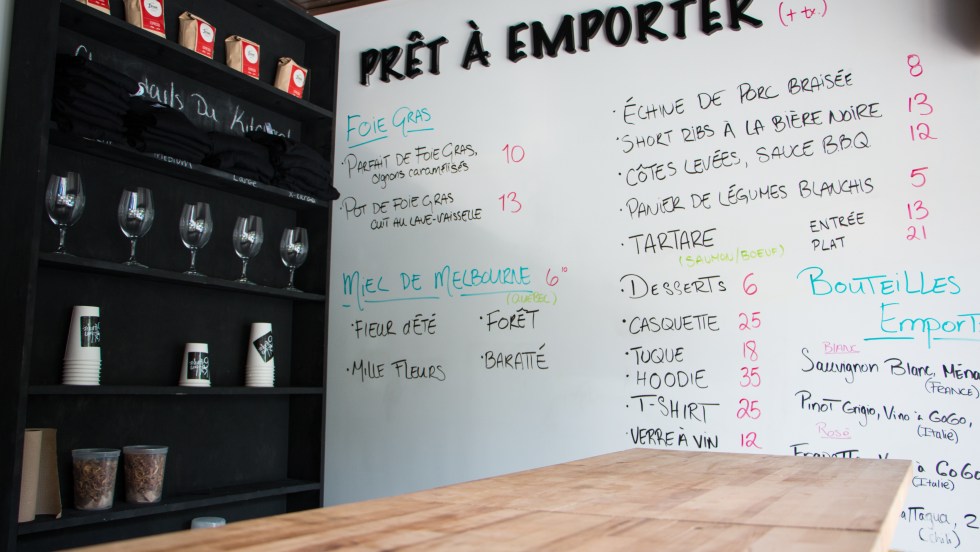 PRÊT À EMPORTER (+ tx.)
FOIE GRAS
• PARFAIT DE FOIE GRAS, 10
oignons caramélisés
• POT DE FOIE GRAS 13
CUIT AU LAVE-VAISSELLE
MIEL DE MELBOURNE 6 10
(QUÉBEC)
• FLEUR d'ÉTÉ • FORÊT
• MILLE FLEURS • BARATTÉ
• ÉCHINE DE PORC BRAISÉE 8
• SHORT RIBS À LA BIÈRE NOIRE 13
• CÔTES LEVÉES, SAUCE B.B.Q 12
• PANIER DE LÉGUMES BLANCHIS 5
• TARTARE ENTRÉE 13
(SAUMON/BOEUF) PLAT 21
• DESSERTS 6
• CASQUETTE 25
• TUQUE 18
• HOODIE 35
• T-SHIRT 25
• VERRE À VIN 12
BOUTEILLES
EMPORT
BLANC
Sauvignon Blanc, Ména
(FRANCE)
Pinot Grigio, Vino à GoGo,
(Italie)
Rosé
à GoGo
(Italie)
Du
medium
Large